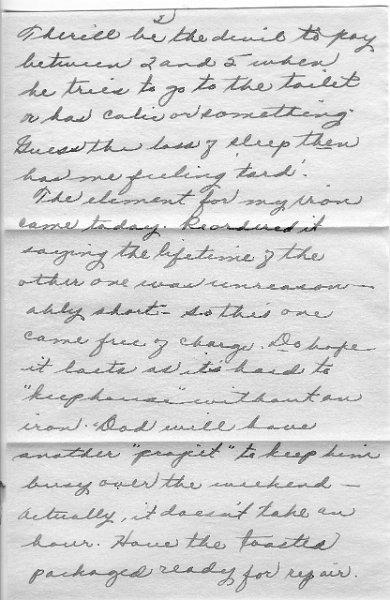 2)
There'll be the devil to pay
between 2 and 5 when
he tries to go to the toilet
or has colic or something.
Guess the loss of sleep then
has me feeling 'tard'.
The element for my iron
came today. Reordered it
saying the lifetime of the
other one was unreason-
ably short - so this one
came free of charge. Do hope
it lasts as it's hard to
"keep house" without an
iron. Dad will have
another "project" to keep him
busy over the weekend -
Actually, it doesn't take an
hour. Have the toaster
packaged ready for repair.